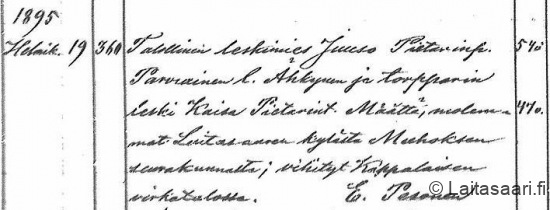 1895
Helmik. 19 360 Talollinen leskimies Juuso Pietarinp. 54½
Parviainen l. Ähkynen ja torpparin
leski Kaisa Pietarint. Määttä, molem- 47½.
mat Laitasaaren kylästä Muhoksen
seurakunnasta; vihityt Kappalaisen
virkatalossa. E. Pesonen
© Laitasaari.fi